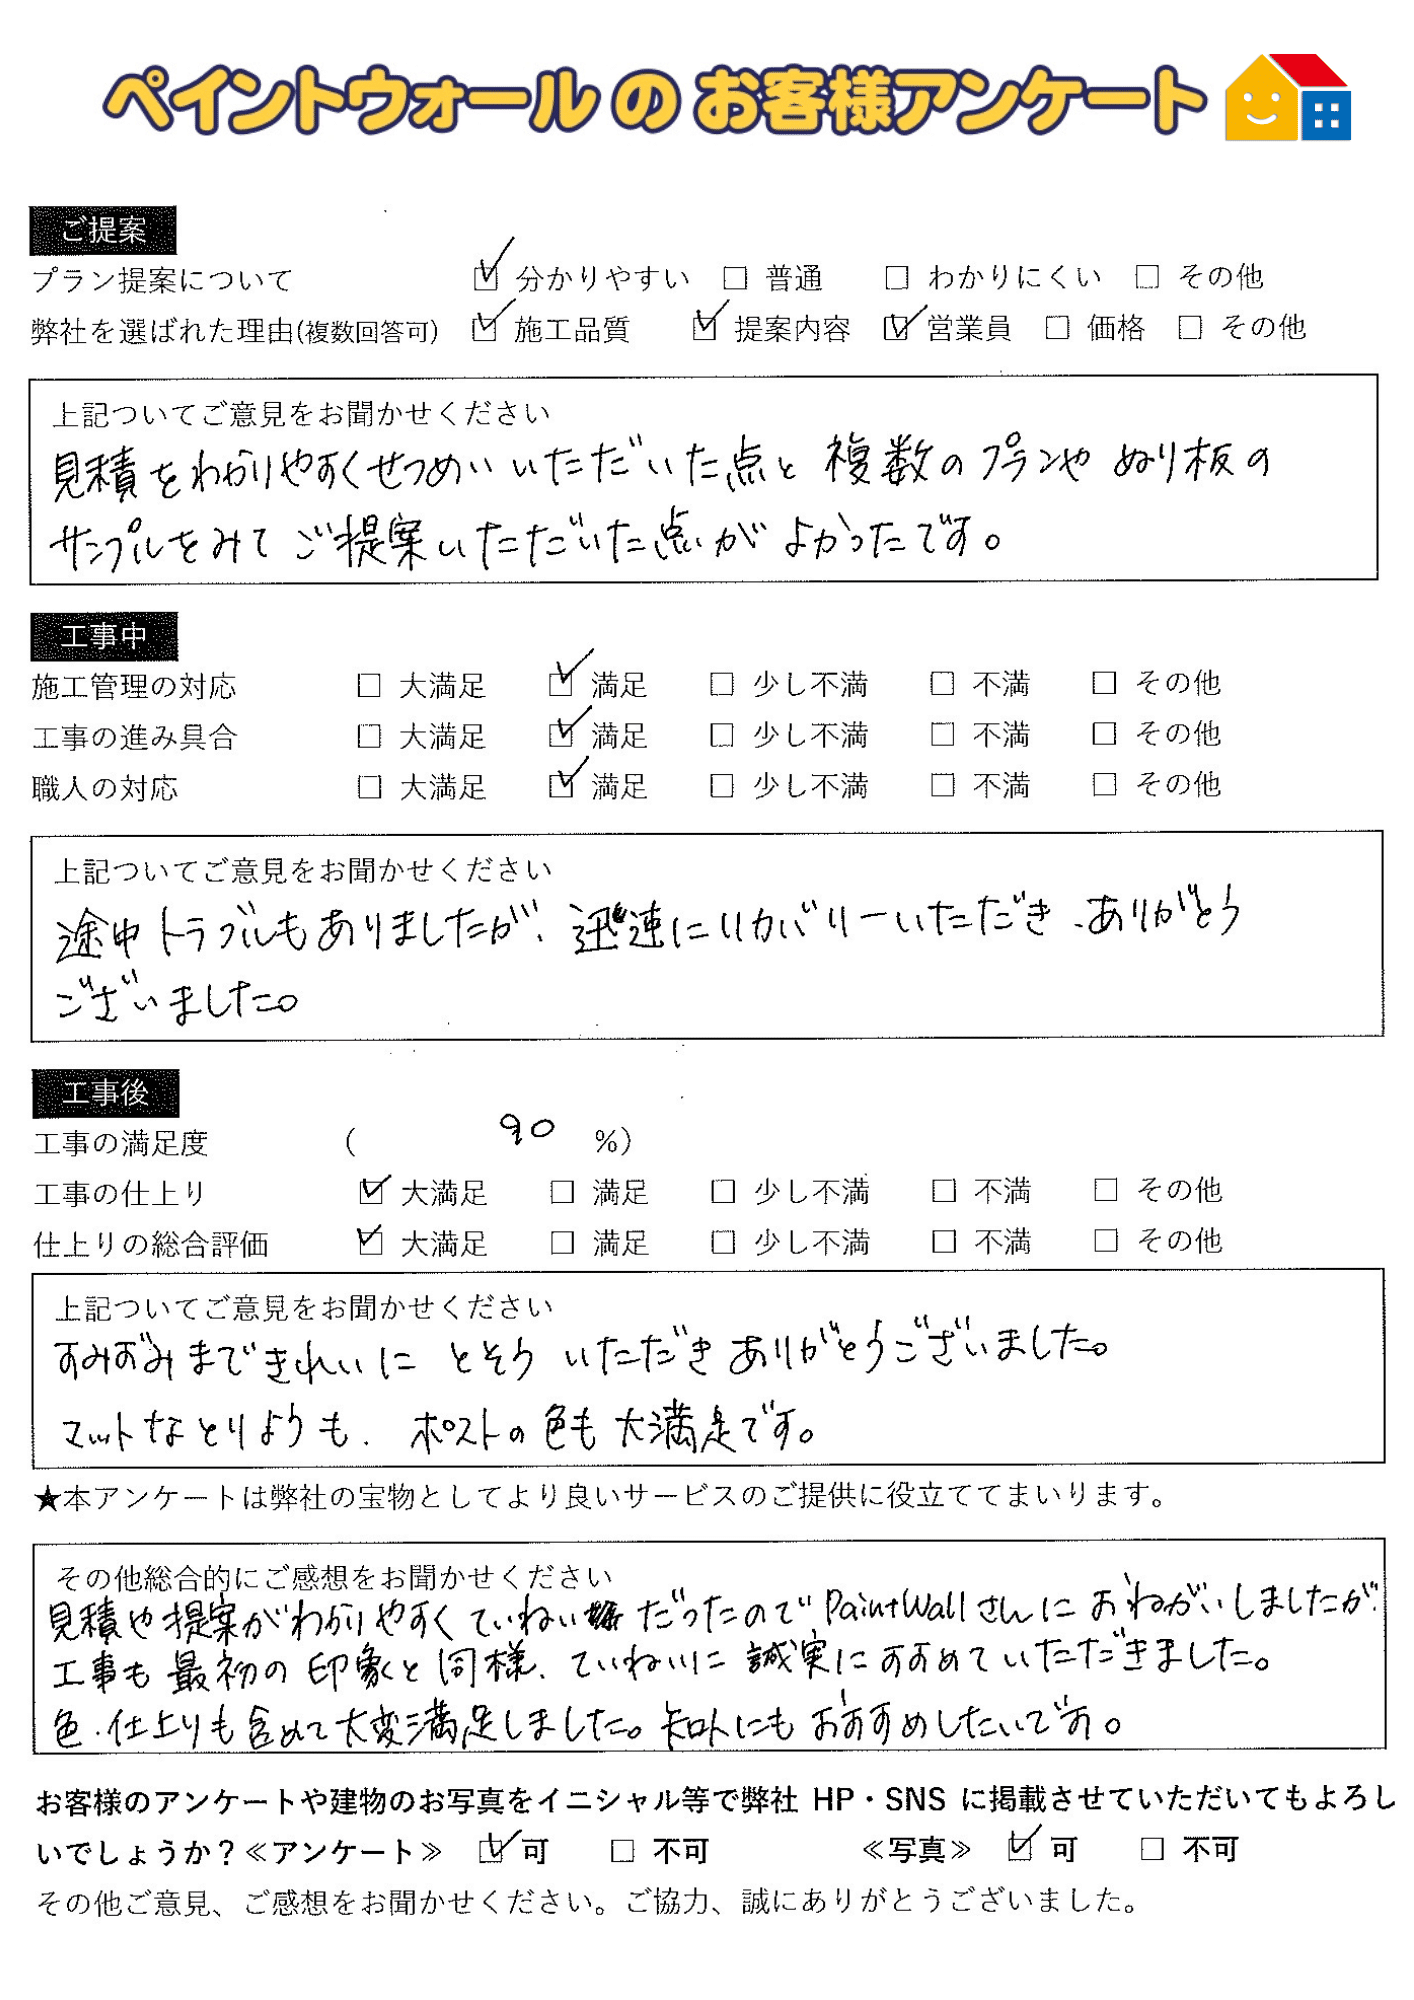 ペイントウォールのお客様アンケート
ご提案
プラン提案について ☑ 分かりやすい □ 普通 □ わかりにくい □ その他
弊社を選ばれた理由(複数回答可) ☑ 施工品質 ☑ 提案内容 ☑ 営業員 □ 価格 □ その他
上記ついてご意見をお聞かせください
見積をわかりやすくせつめいいただいた点と複数のプランやぬり板の
サンプルをみてご提案いただいた点がよかったです。
工事中
施工管理の対応 □ 大満足 ☑ 満足 □ 少し不満 □ 不満 □ その他
工事の進み具合 □ 大満足 ☑ 満足 □ 少し不満 □ 不満 □ その他
職人の対応 □ 大満足 ☑ 満足 □ 少し不満 □ 不満 □ その他
上記ついてご意見をお聞かせください
途中トラブルもありましたが、迅速にリカバリーいただき、ありがとう
ございました。
工事後
工事の満足度 ( 90 %)
工事の仕上り ☑ 大満足 □ 満足 □ 少し不満 □ 不満 □ その他
仕上りの総合評価 ☑ 大満足 □ 満足 □ 少し不満 □ 不満 □ その他
上記ついてご意見をお聞かせください
すみずみまできれいにとそういただきありがとうございました。
マットなとりよりも、ポストの色も大満足です。
★本アンケートは弊社の宝物としてより良いサービスのご提供に役立ててまいります。
その他総合的にご感想をお聞かせください
見積や提案がわかりやすくていねいだったのでPaintWallさんにおねがいしましたが、
工事も最初の印象と同様、ていねいに誠実にすすめていただきました。
色・仕上りも含めて大変満足しました。知人にもおすすめしたいです。
お客様のアンケートや建物のお写真をイニシャル等で弊社 HP・SNS に掲載させていただいてもよろし
いでしょうか？≪アンケート≫ ☑ 可 □ 不可 ≪写真≫ ☑ 可 □ 不可
その他ご意見、ご感想をお聞かせください。ご協力、誠にありがとうございました。